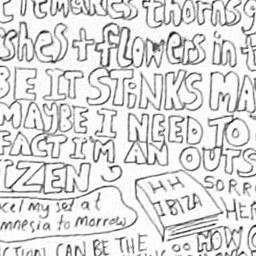 remakes thorns
shes + flowers in t
BE IT STINKS MA
MAYBE I NEED TO
FACT I'M AN OUTS
IZEN
cel my set at
mnesia tomorrow
HH
IBIZA
SORR
HE
CTION CAN BE THE
HOW